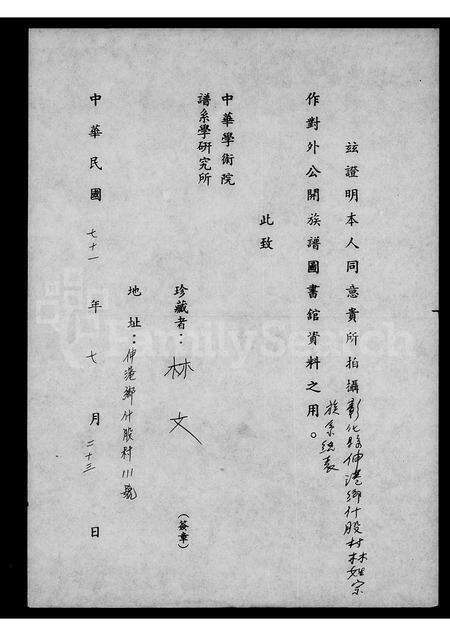 玆證明本人同意貴所拍攝彰化縣伸港鄉什股村林姓宗
族系統表
作對外公開族譜圖書館資料之用。
此致
中華學術院
譜系學研究所
珍藏者：林文（簽章）
地址：伸港鄉什股村111號
中華民國七十一年七月二十三日